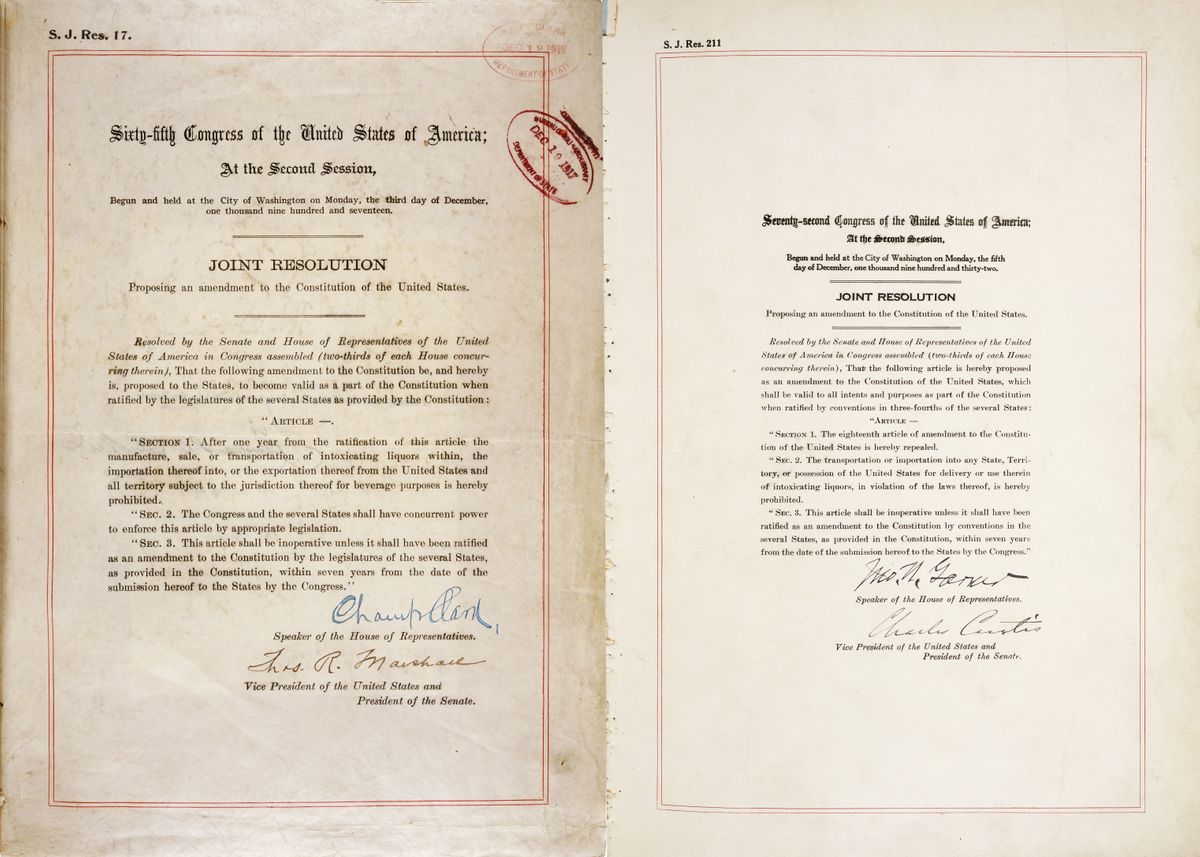 S. J. Res. 17.
DEC 19 1917
DEPARTMENT OF STATE
DEC 19 1917
DEPARTMENT OF STATE
Sixty-fifth Congress of the United States of America;
At the Second Session,
Begun and held at the City of Washington on Monday, the third day of December,
one thousand nine hundred and seventeen.
JOINT RESOLUTION
Proposing an amendment to the Constitution of the United States.
Resolved by the Senate and House of Representatives of the United
States of America in Congress assembled (two-thirds of each House concur-
ring therein), That the following amendment to the Constitution be, and hereby
is, proposed to the States, to become valid as a part of the Constitution when
ratified by the legislatures of the several States as provided by the Constitution:
"ARTICLE —.
"SECTION 1. After one year from the ratification of this article the
manufacture, sale, or transportation of intoxicating liquors within, the
importation thereof into, or the exportation thereof from the United States and
all territory subject to the jurisdiction thereof for beverage purposes is hereby
prohibited.
"SEC. 2. The Congress and the several States shall have concurrent power
to enforce this article by appropriate legislation.
"SEC. 3. This article shall be inoperative unless it shall have been ratified
as an amendment to the Constitution by the legislatures of the several States,
as provided in the Constitution, within seven years from the date of the
submission hereof to the States by the Congress."
Champ Clark
Speaker of the House of Representatives.
Thos. R. Marshall
Vice President of the United States and
President of the Senate.
S. J. Res. 211
Seventy-second Congress of the United States of America;
At the Second Session,
Begun and held at the City of Washington on Monday, the fifth
day of December, one thousand nine hundred and thirty-two.
JOINT RESOLUTION
Proposing an amendment to the Constitution of the United States.
Resolved by the Senate and House of Representatives of the United
States of America in Congress assembled (two-thirds of each House
concurring therein), That the following article is hereby proposed
as an amendment to the Constitution of the United States, which
shall be valid to all intents and purposes as part of the Constitution
when ratified by conventions in three-fourths of the several States:
"ARTICLE —
"SECTION 1. The eighteenth article of amendment to the Constitu-
tion of the United States is hereby repealed.
"SEC. 2. The transportation or importation into any State, Terri-
tory, or possession of the United States for delivery or use therein
of intoxicating liquors, in violation of the laws thereof, is hereby
prohibited.
"SEC. 3. This article shall be inoperative unless it shall have been
ratified as an amendment to the Constitution by conventions in the
several States, as provided in the Constitution, within seven years
from the date of the submission hereof to the States by the Congress."
Jno. N. Garner
Speaker of the House of Representatives.
Charles Curtis
Vice President of the United States and
President of the Senate.